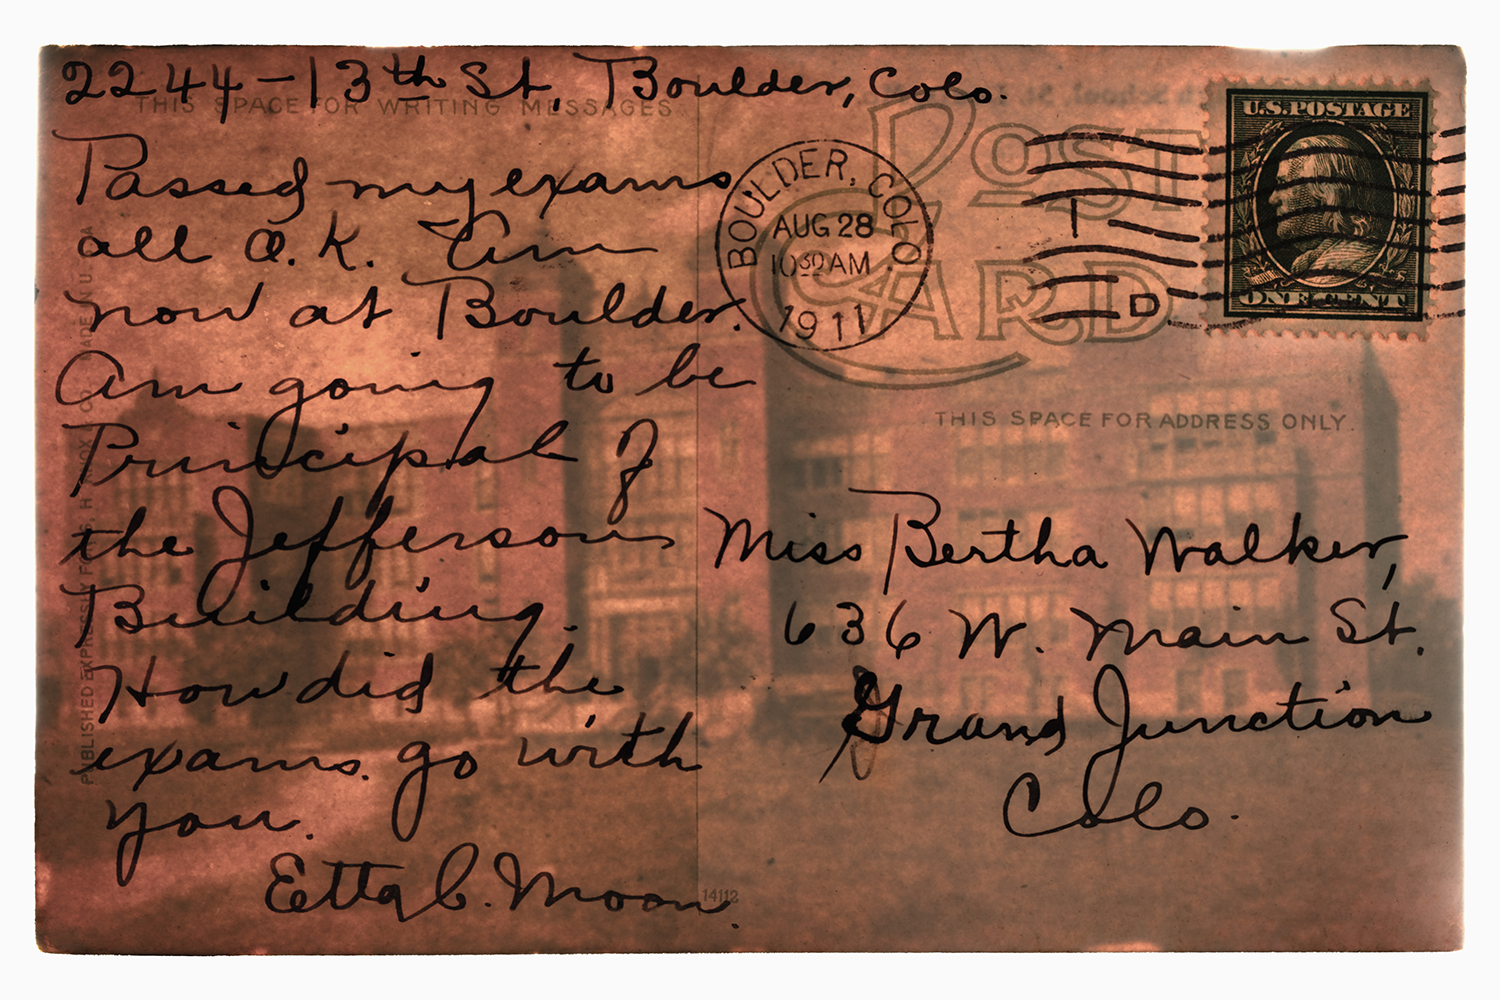 2244-13th St. Boulder, Colo.
THIS SPACE FOR WRITING MESSAGES
Passed my exams
all O.K. Am
now at Boulder.
Am going to be
Principal of
the Jefferson
Building.
How did the
exams. go with
you.
Etta C. Moon.
POST
CARD
BOULDER, COLO.
AUG 28
10 30 AM
1911
1
D
U.S. POSTAGE
ONE CENT
THIS SPACE FOR ADDRESS ONLY.
Miss Bertha Walker,
636 W. Main St.
Grand Junction
Colo.
14112
PUBLISHED EXPRESSLY FOR